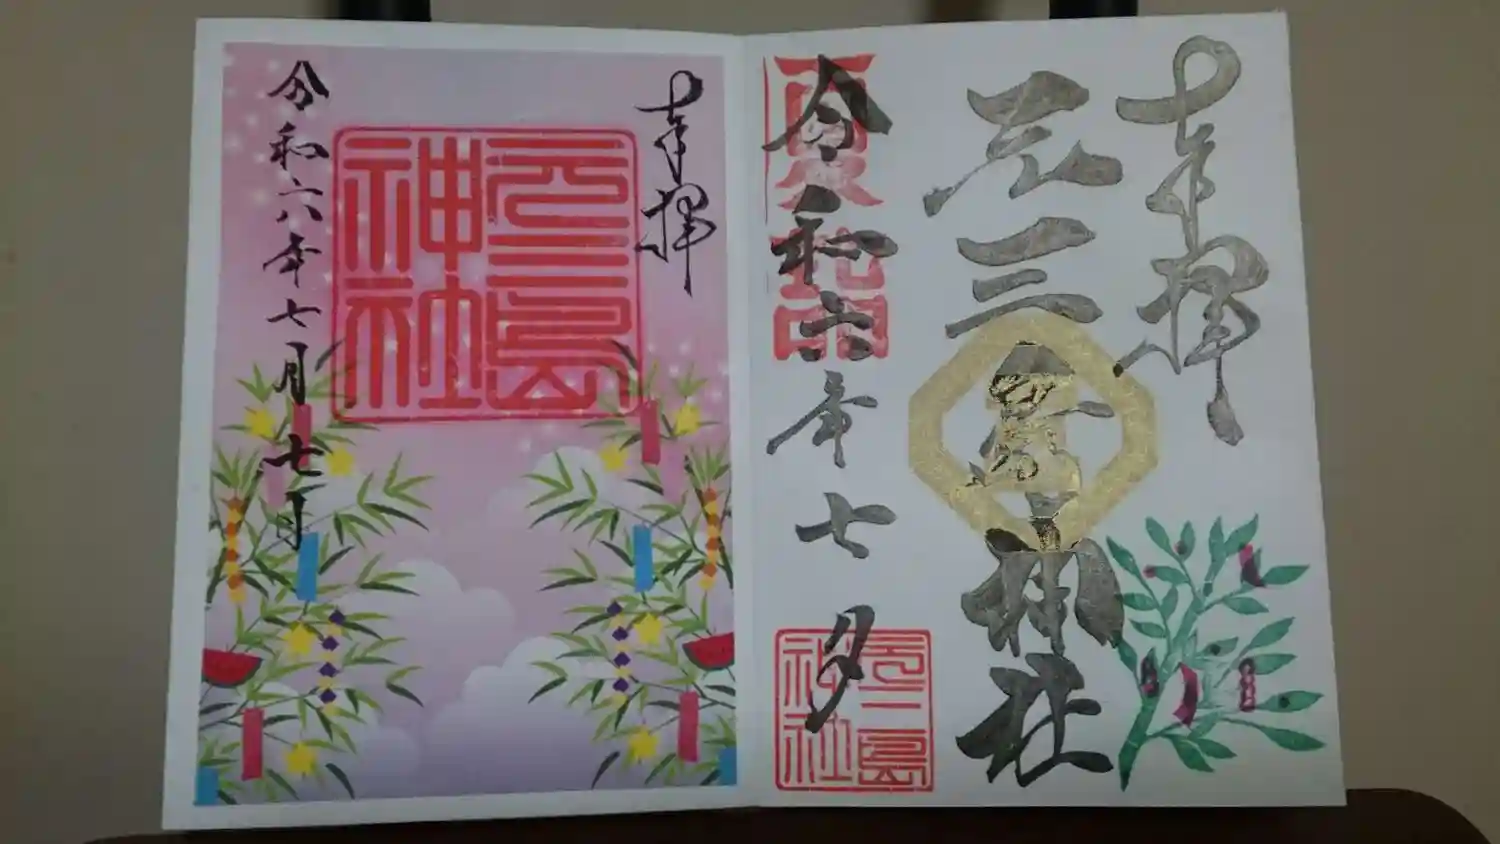 奉拝
元三島神社
令和六年七夕
元三島
神社
奉拝
元三島
神社
令和六年七月七日